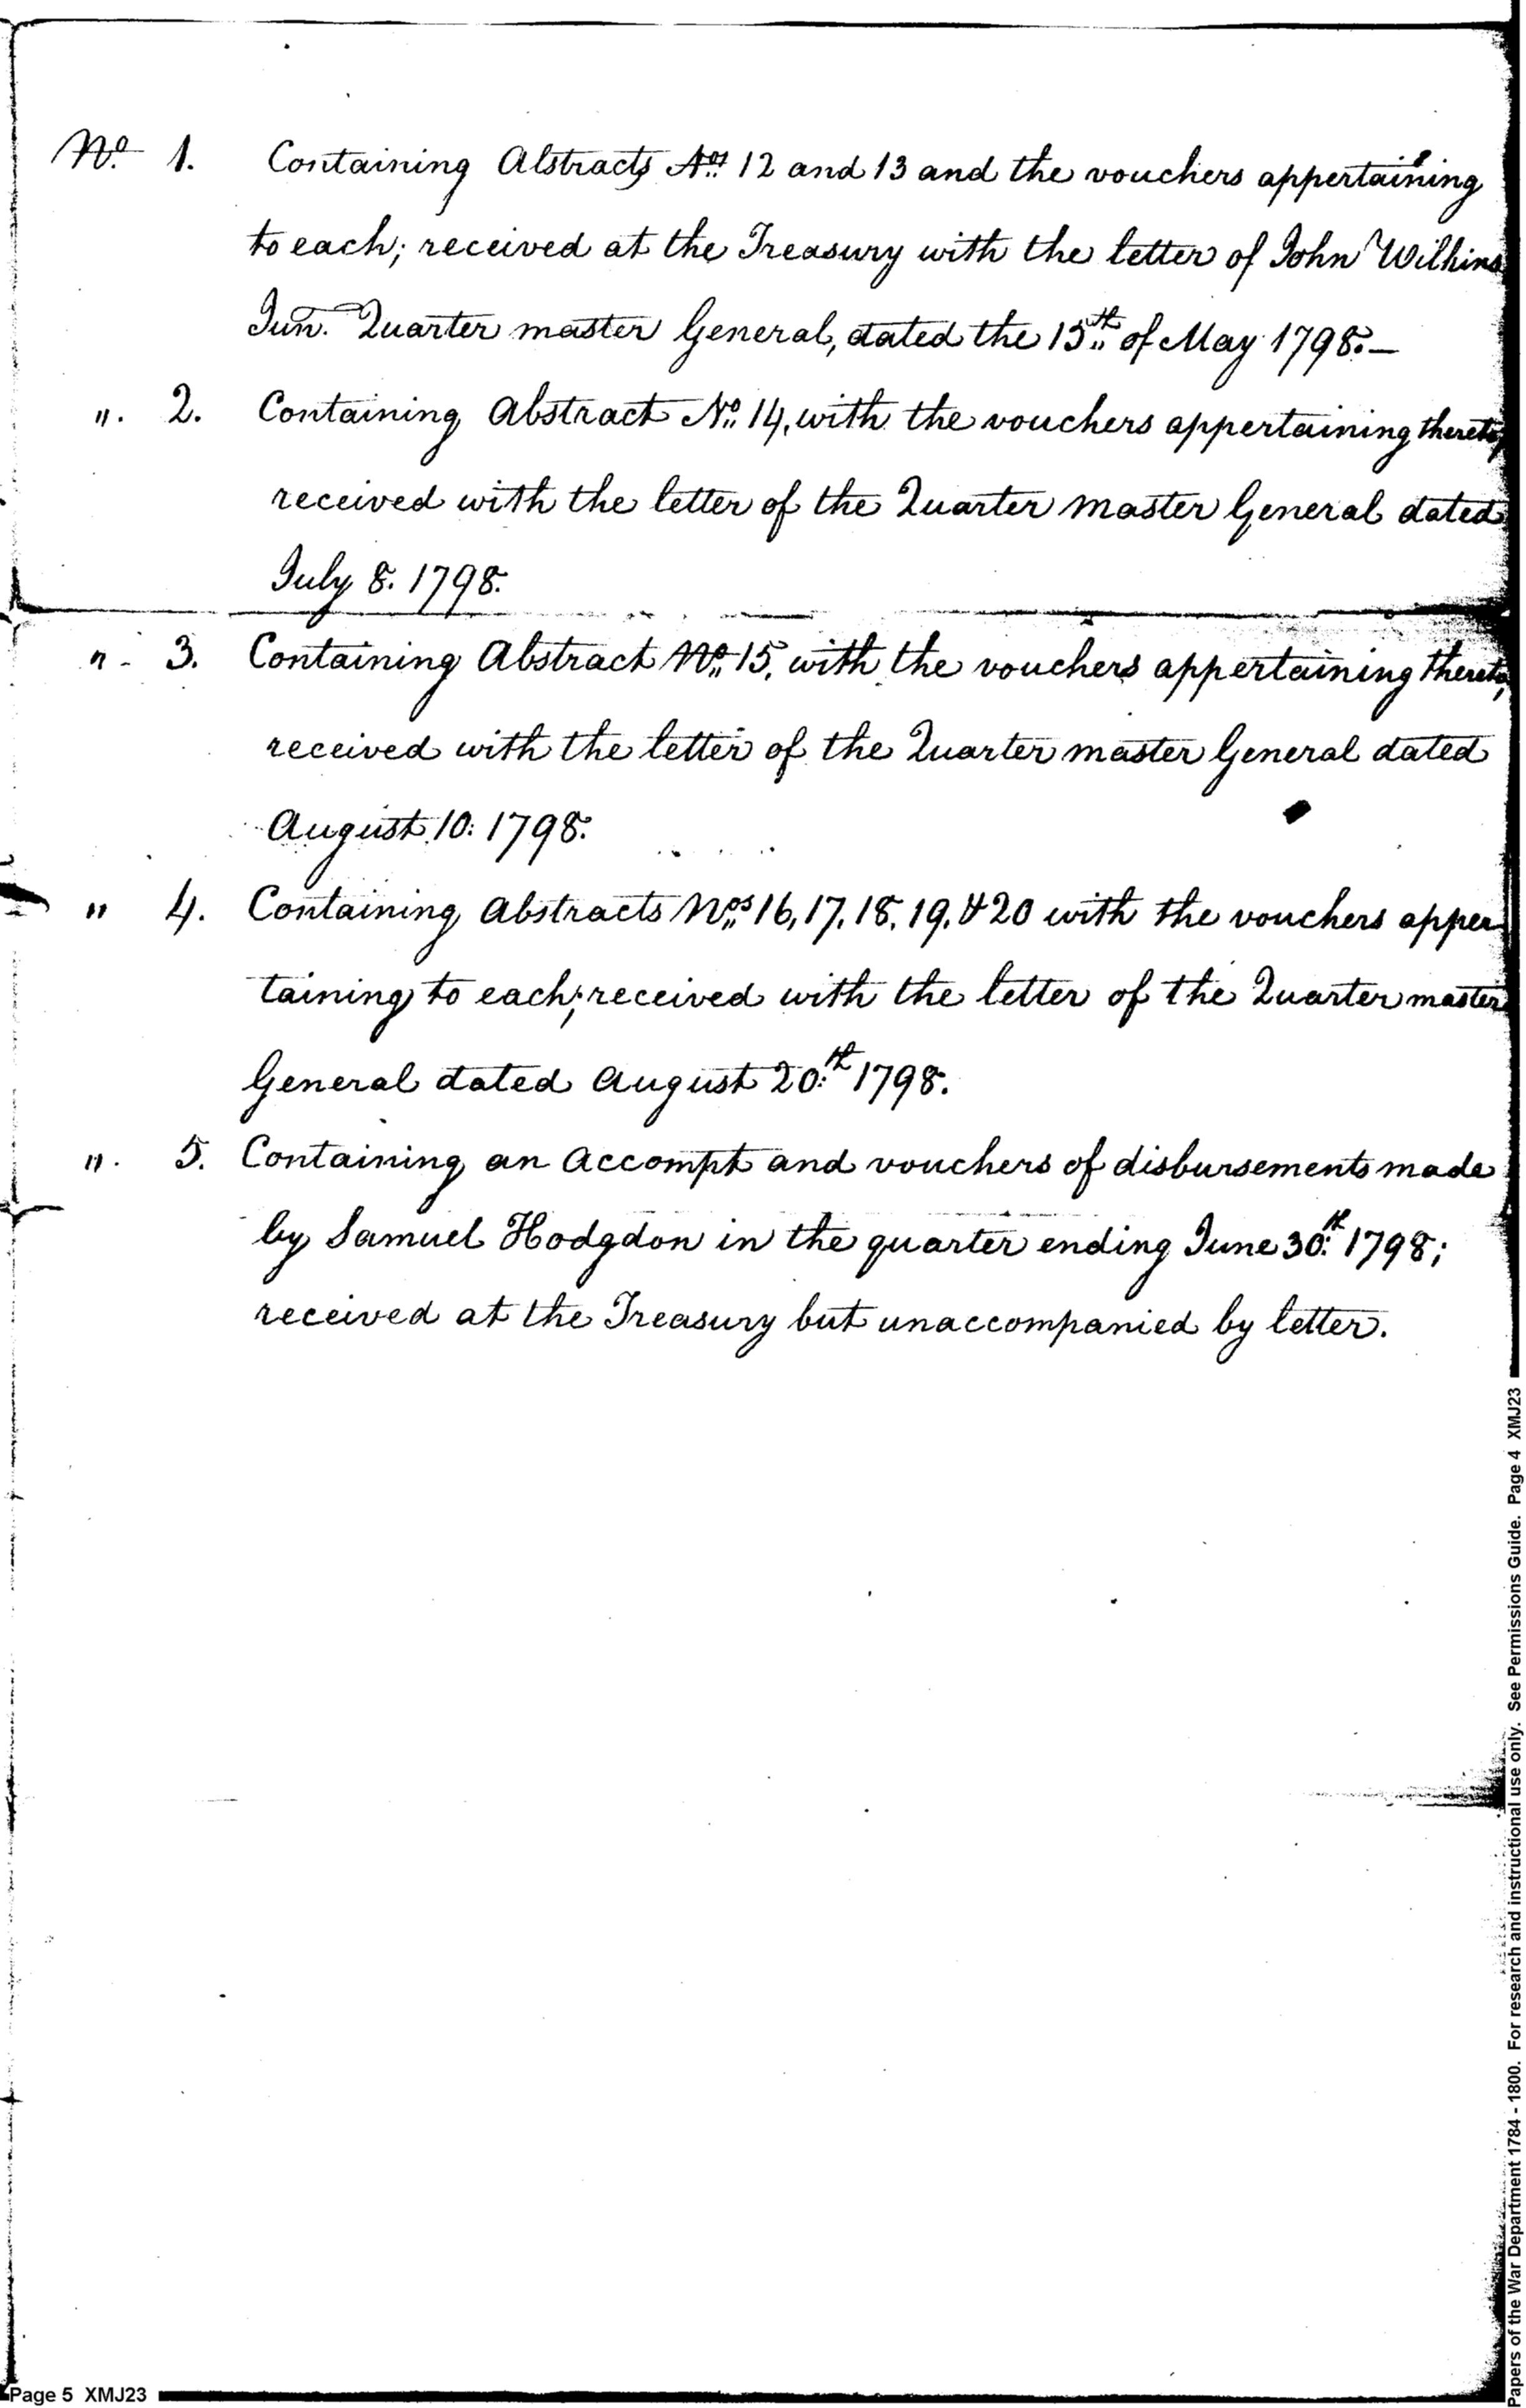 No. 1. Containing Abstracts Nos. 12 and 13 and the vouchers appertaining
to each; received at the Treasury with the letter of John Wilkins
Jun. Quarter master General, dated the 15th of May 1798.—
". 2. Containing Abstract No. 14, with the vouchers appertaining thereto,
received with the letter of the Quarter master General dated
July 8. 1798.
" - 3. Containing Abstract No. 15, with the vouchers appertaining thereto,
received with the letter of the Quarter master General dated
August 10: 1798.
" 4. Containing Abstracts Nos. 16, 17, 18, 19, & 20 with the vouchers apper
taining to each; received with the letter of the Quarter master
General dated August 20:th 1798.
". 5. Containing an Accompt and vouchers of disbursements made
by Samuel Hodgdon in the quarter ending June 30:th 1798;
received at the Treasury but unaccompanied by letter.
Papers of the War Department 1784 - 1800. For research and instructional use only. See Permissions Guide. Page 4 XMJ23
Page 5 XMJ23